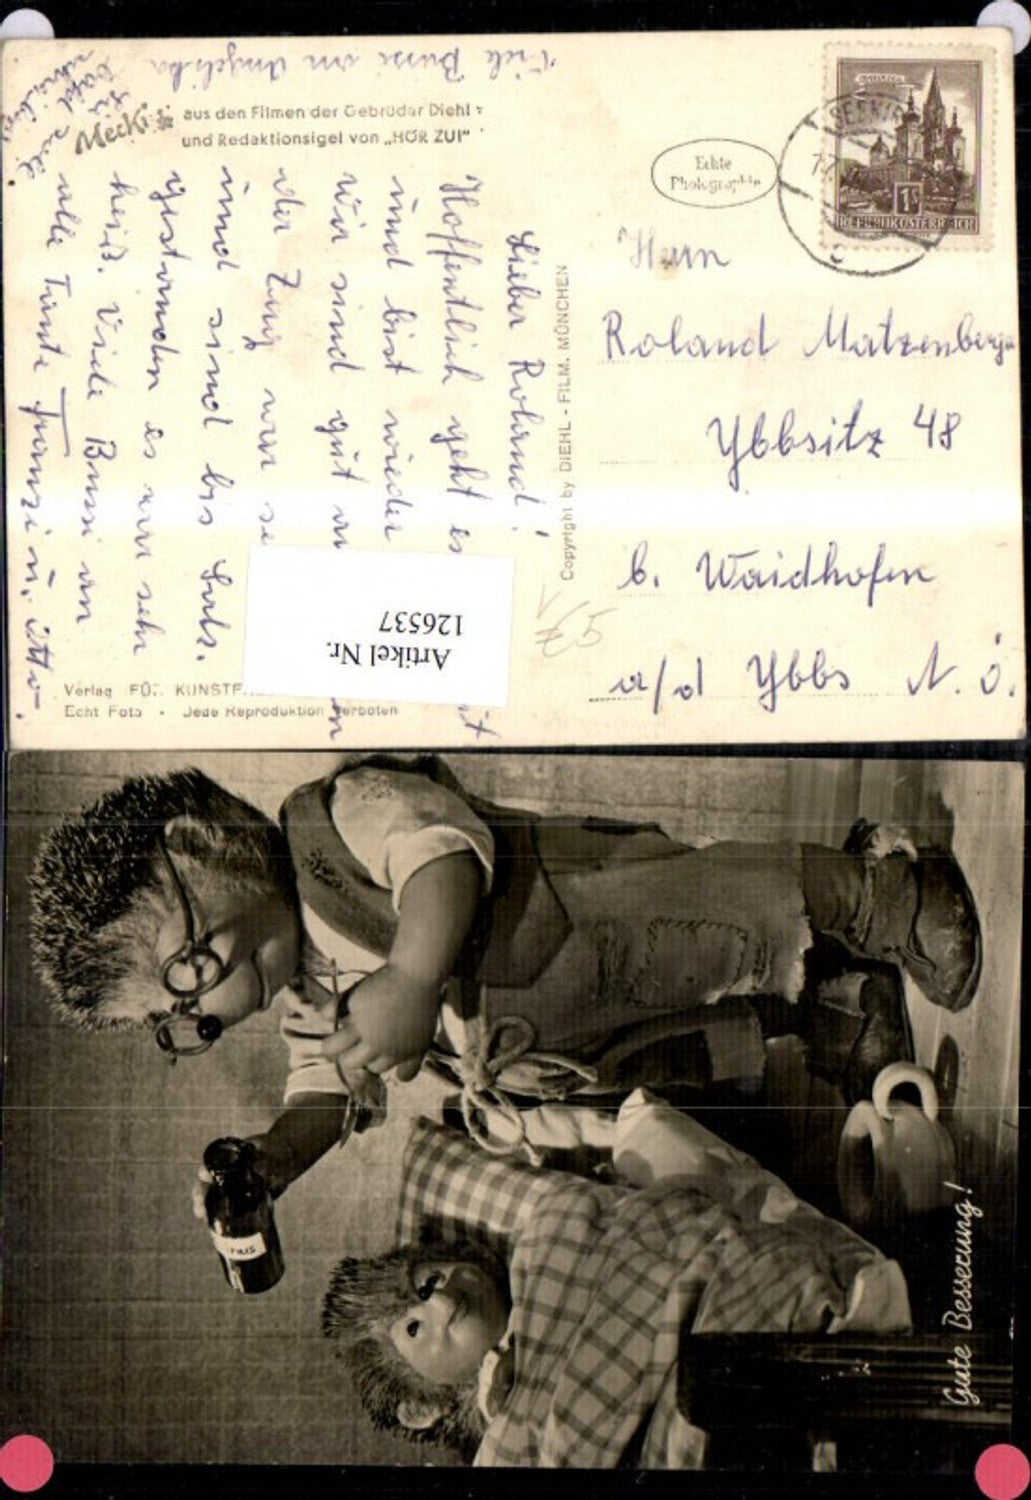 Viele Bussi von Angelika
Mecki
aus den Filmen der Gebrüder Diehl
und Redaktionsigel von „HÖR ZU!"
Lieber Roland!
Hoffentlich geht es
und bist wieder
Wir sind gut
der Zug war
und sind bis Lunz.
gestanden es war sehr
heiß. Viele Bussi an
alle Tante Franzi u. Otto.
Copyright by DIEHL - FILM. MÜNCHEN
Echte
Photographie
1S
REPUBLIK ÖSTERREICH
Herrn
Roland Matzenberger
Ybbsitz 48
b. Waidhofen
a/d Ybbs N.Ö.
Artikel Nr.
126537
Verlag FÜR KUNST
Echt Foto - Jede Reproduktion verboten
Gute Besserung!